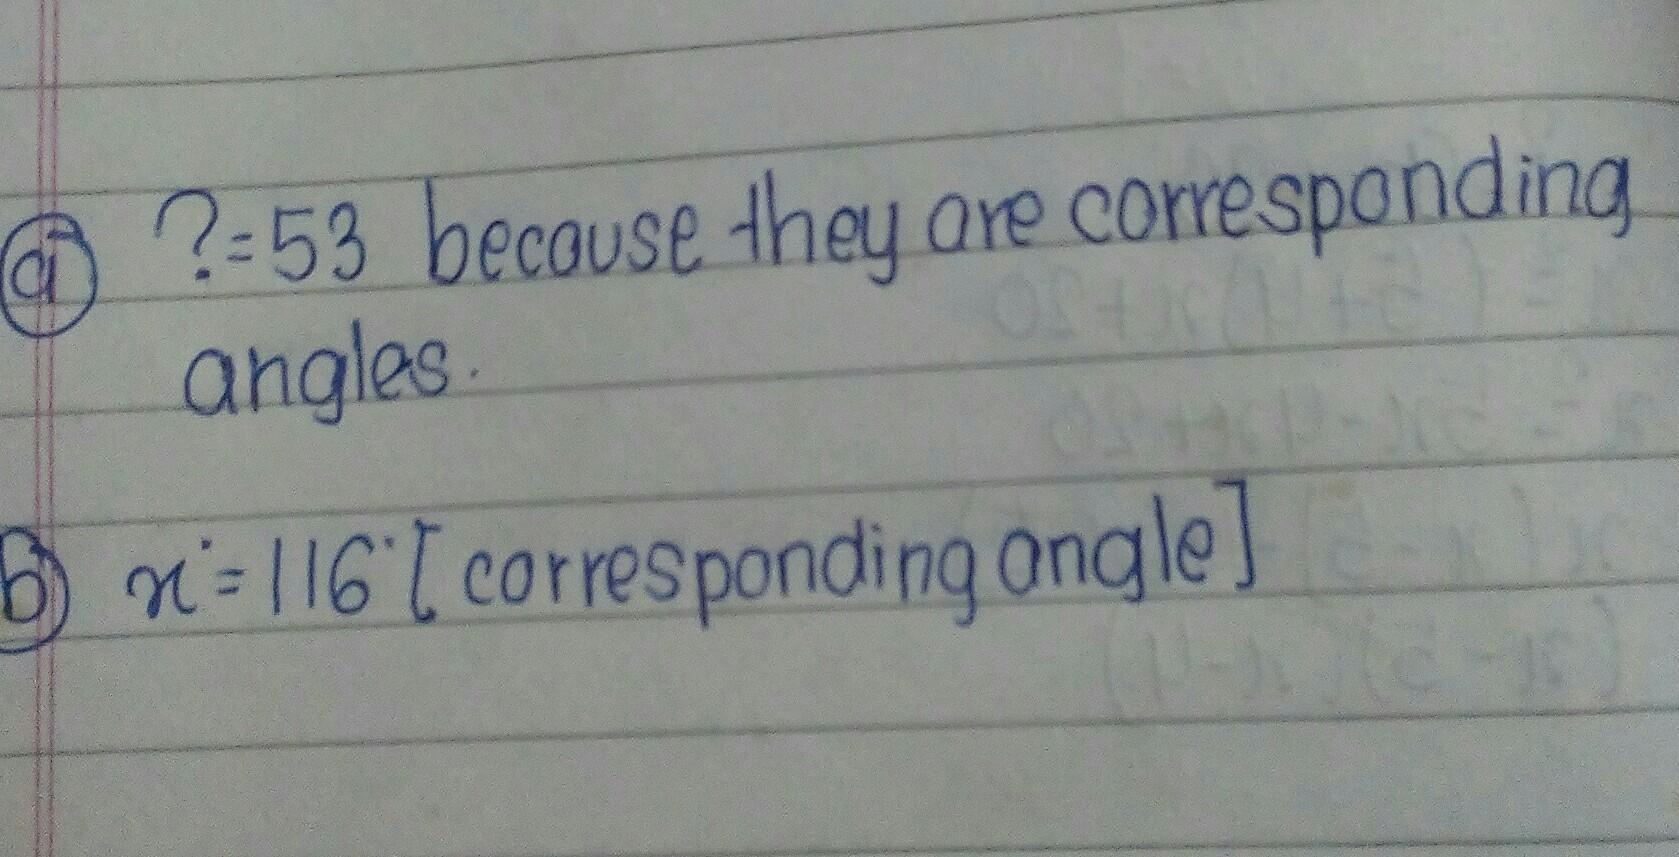 a) ?=53 because they are corresponding
angles.
b) x°=116° [corresponding angle]